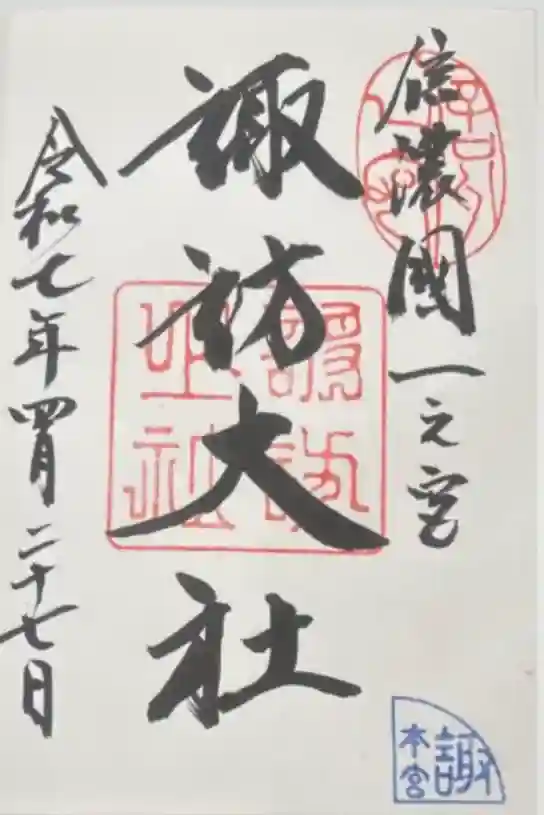 信濃國一之宮
諏訪大社
令和七年四月二十七日
諏
本宮